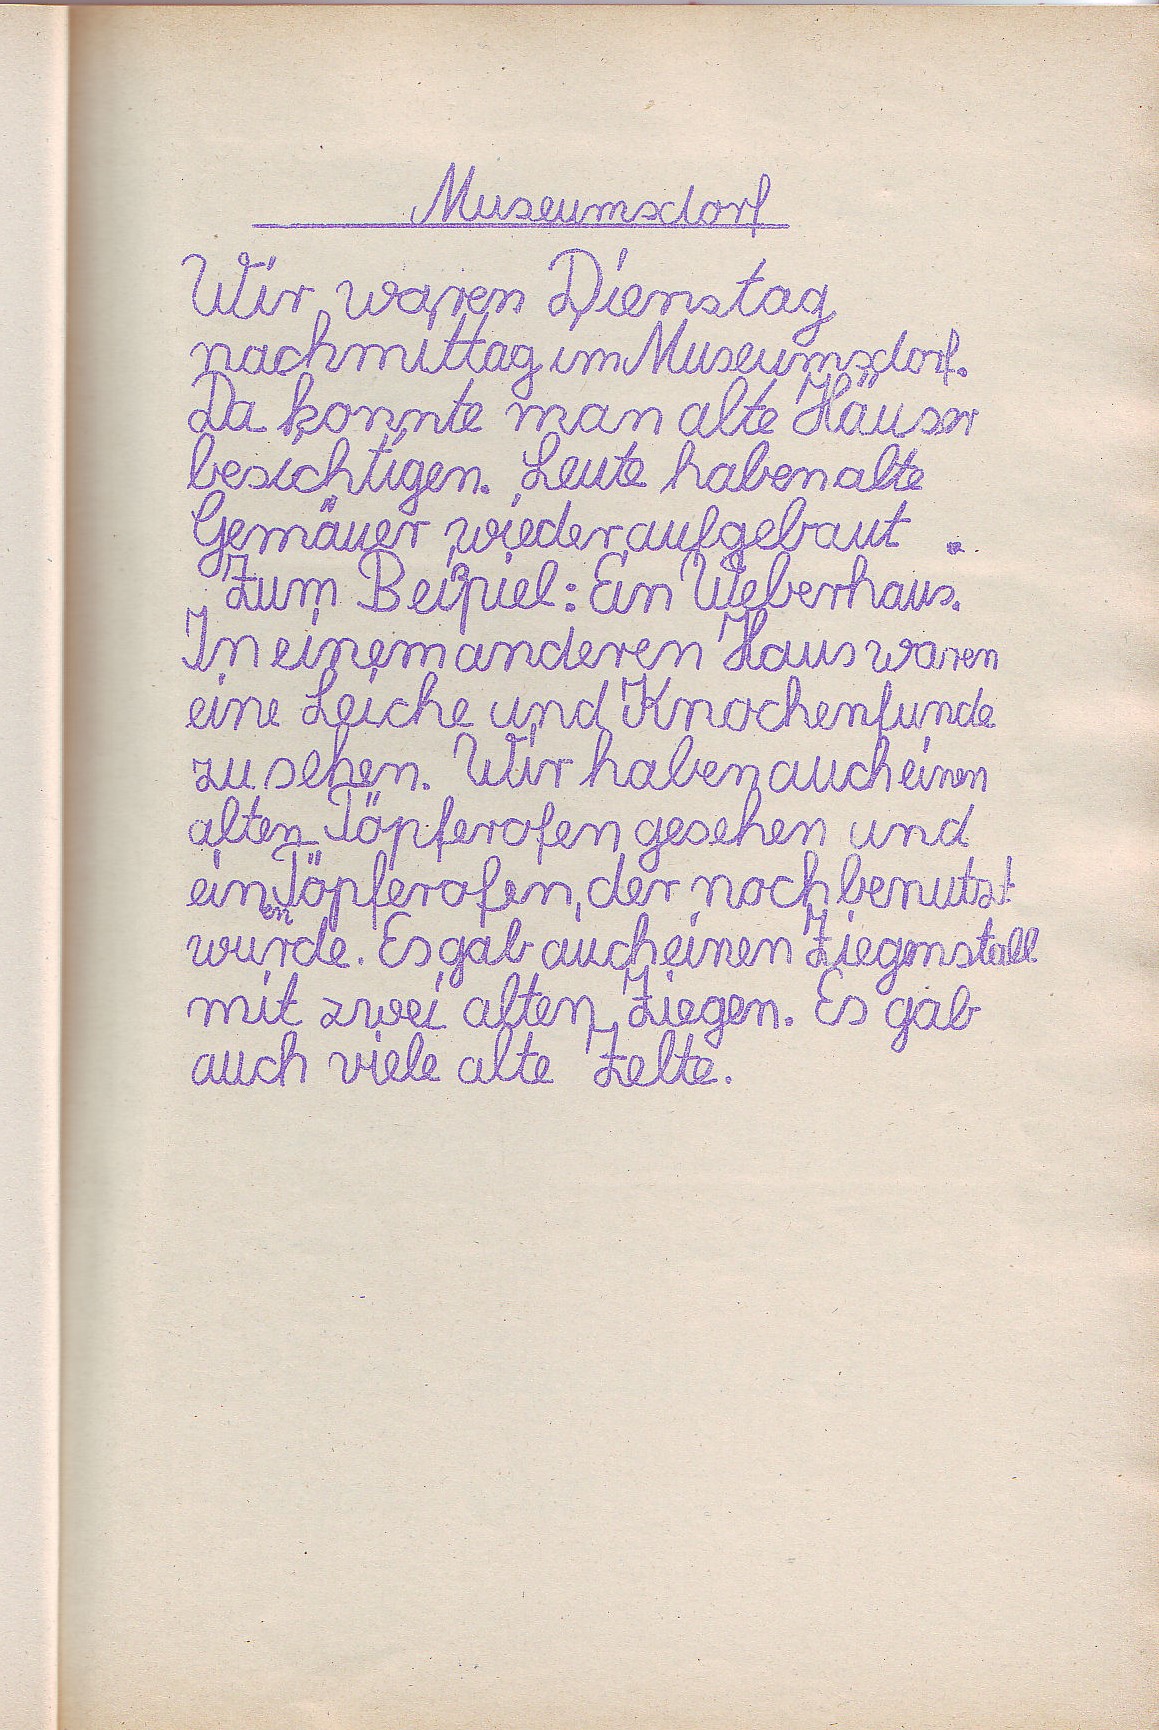 Museumsdorf
Wir waren Dienstag
nachmittag im Museumsdorf.
Da konnte man alte Häuser
besichtigen. Leute haben alte
Gemäuer wieder aufgebaut.
Zum Beipiel: Ein Weberhaus.
In einem anderen Haus waren
eine Leiche und Knochenfunde
zu sehen. Wir haben auch einen
alten Töpferofen gesehen und
einen Töpferofen, der noch benutzt
wurde. Es gab auch einen Ziegenstall
mit zwei alten Ziegen. Es gab
auch viele alte Zelte.